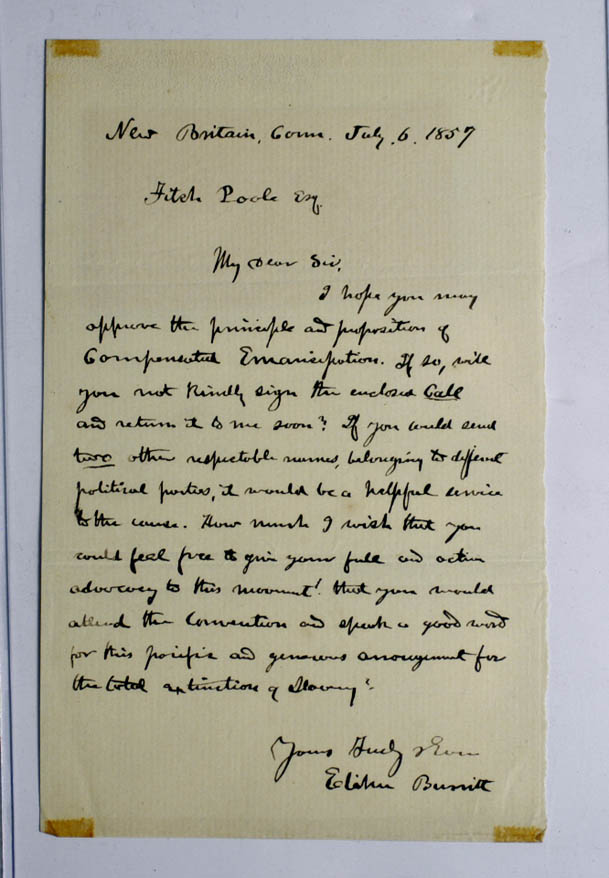 New Britain, Conn. July, 6. 1857
Fitch Poole Esq.
My Dear Sir,
I hope you may
approve the principle and proposition of
Compensated Emancipation. If so, will
you not kindly sign the enclosed Call
and return it to me soon? If you could send
two other respectable names, belonging to different
political parties, it would be a helpful service
to the cause. How much I wish that you
could feel free to give your full and active
advocacy to this movement! that you would
attend the Convention and speak a good word
for this pacific and generous arrangement for
the total extinction of Slavery!
Yours Truly
Elihu Burritt